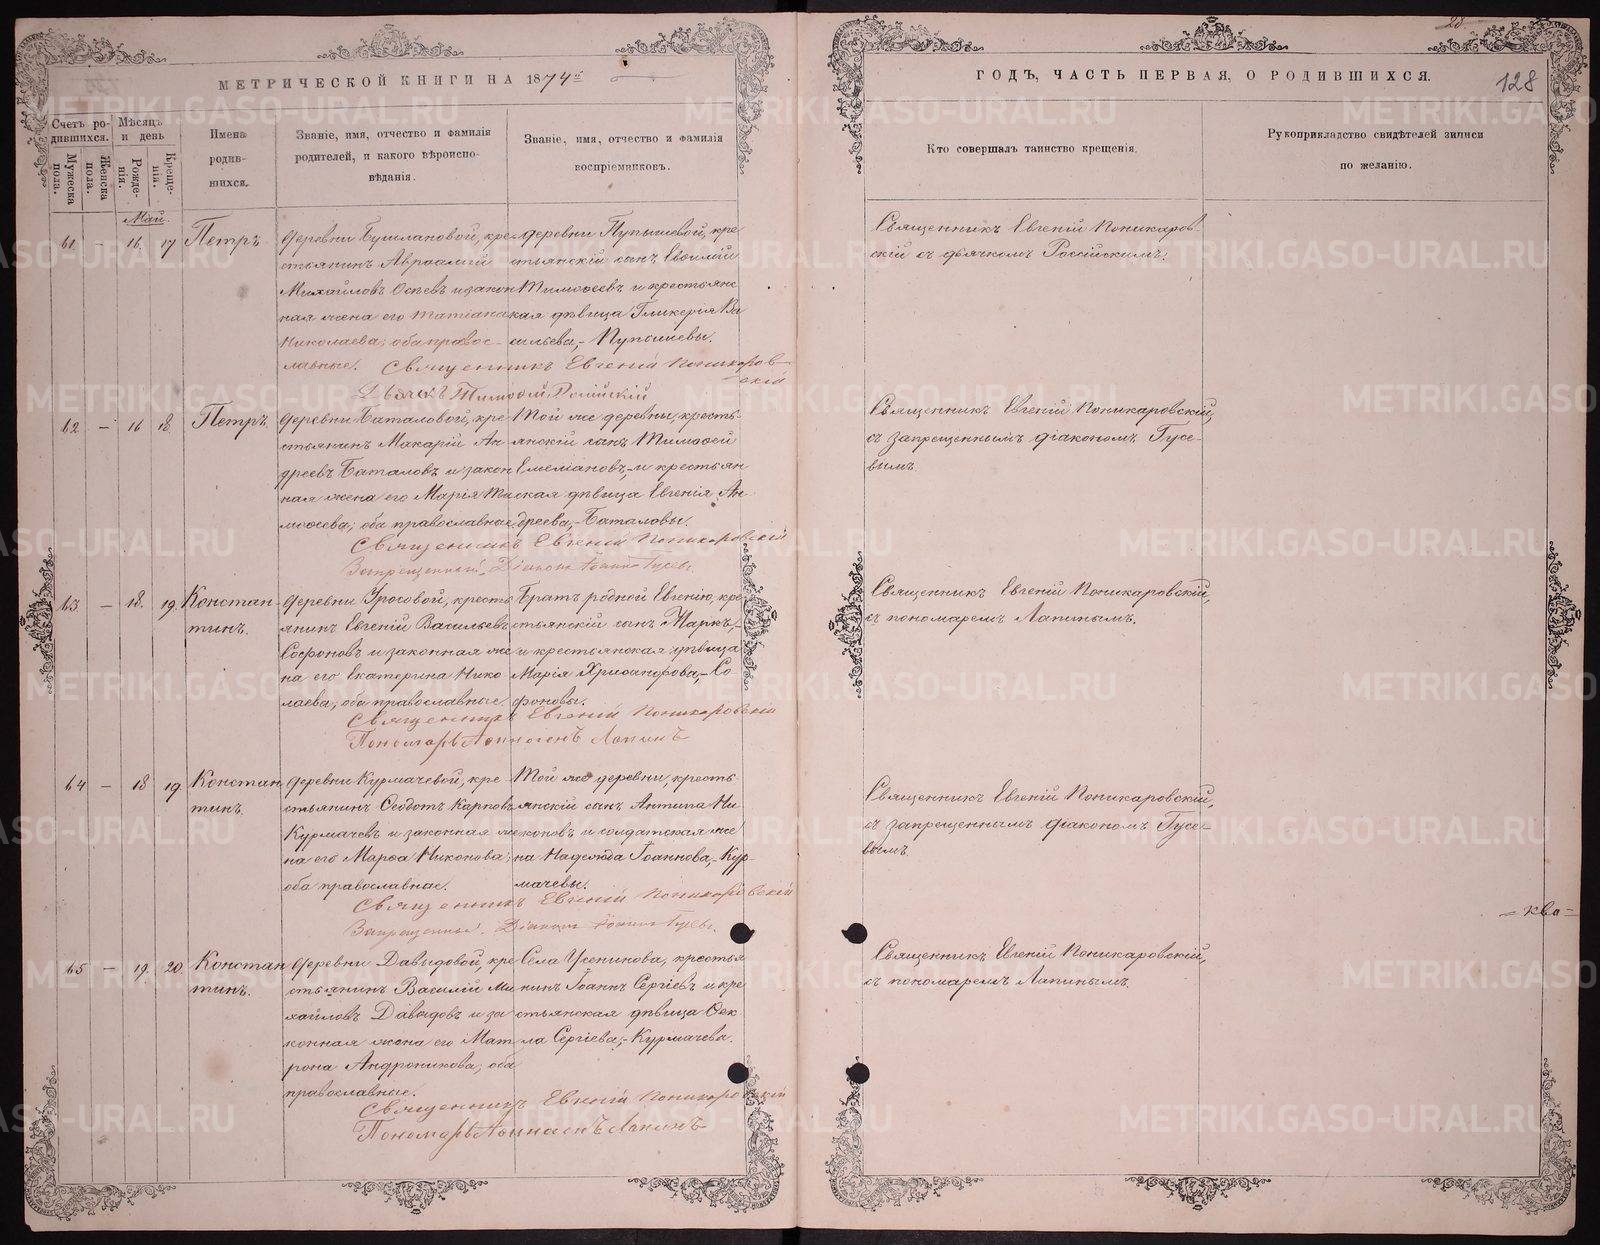 МЕТРИЧЕСКОЙ КНИГИ НА 1874
Счетъ родившихся.
Мужеска пола.
Женска пола.
Мѣсяцъ и день
Рожденія.
Крещенія.
Имена родившихся.
Званіе, имя, отчество и фамилія родителей, и какого вѣроисповѣданія.
Званіе, имя, отчество и фамилія воспріемниковъ.
Май.
61 – 16. 17 Петръ
деревни крестьянинъ Авраамій
Михайловъ и законная жена его Татіана
Николаева; оба православные.
деревни крестьянскій сынъ Евѳимій
Тимоѳеевъ и крестьянская дѣвица Гликерія Васильева,-
Священникъ Евгеній Поникаровскій
62 – 16 18. Петръ.
деревни Баталовой, крестьянинъ Макарій Андреевъ Баталовъ и законная жена его Марія Тимоѳеева; оба православные
Той же деревни, крестьянскій сынъ Тимоѳей
Емеліановъ,-и крестьянская дѣвица Евгенія Андреева,-Баталовы.
Священникъ Евгеній Поникаровскій
Запрещенный Діаконъ Іоаннъ Гусевъ
63 – 18. 19. Константинъ.
деревни крестьянинъ Евгеній Васильевъ
Софоновъ и законная жена его Екатерина Николаева; оба православные.
Братъ родной Евгенію, крестьянскій сынъ Маркъ,-
и крестьянская дѣвица
Марія Хрисанфова,-Софоновы.
Священникъ Евгеній Поникаровскій
Пономарь Лапинъ
64 – 18 19. Константинъ.
деревни Курмачевой, крестьянинъ Ѳеодотъ Карповъ
Курмачевъ и законная жена его Марѳа Никонова;
оба православные.
Той же деревни, крестьянскій сынъ Антипа Никоновъ и солдатская жена Надежда Іоаннова,-Курмачевы.
Священникъ Евгеній Поникаровскій
Запрещенный Діаконъ Іоаннъ Гусевъ
65 – 19. 20. Константинъ.
деревни Давидовой, крестьянинъ Василій Михайловъ Давидовъ и законная жена его Матрона Андроникова; оба
православные.
Села крестьянинъ Іоаннъ Сергіевъ и крестьянская дѣвица Ѳекла Сергіева,-Курмачева.
Священникъ Евгеній Поникаровскій
Пономарь Лапинъ
28
ГОДЪ, ЧАСТЬ ПЕРВАЯ, О РОДИВШИХСЯ.
128
Кто совершалъ таинство крещенія.
Рукоприкладство свидѣтелей записи
по желанію.
Священникъ Евгеній Поникаровскій съ дьячкомъ Россійскимъ.
Священникъ Евгеній Поникаровскій,
съ запрещеннымъ діакономъ Гусевымъ.
Священникъ Евгеній Поникаровскій,
съ пономаремъ Лапинымъ.
Священникъ Евгеній Поникаровскій,
съ запрещеннымъ діакономъ Гусевымъ.
= ква =
Священникъ Евгеній Поникаровскій,
съ пономаремъ Лапинымъ.
METRIKI.GASO-URAL.RU